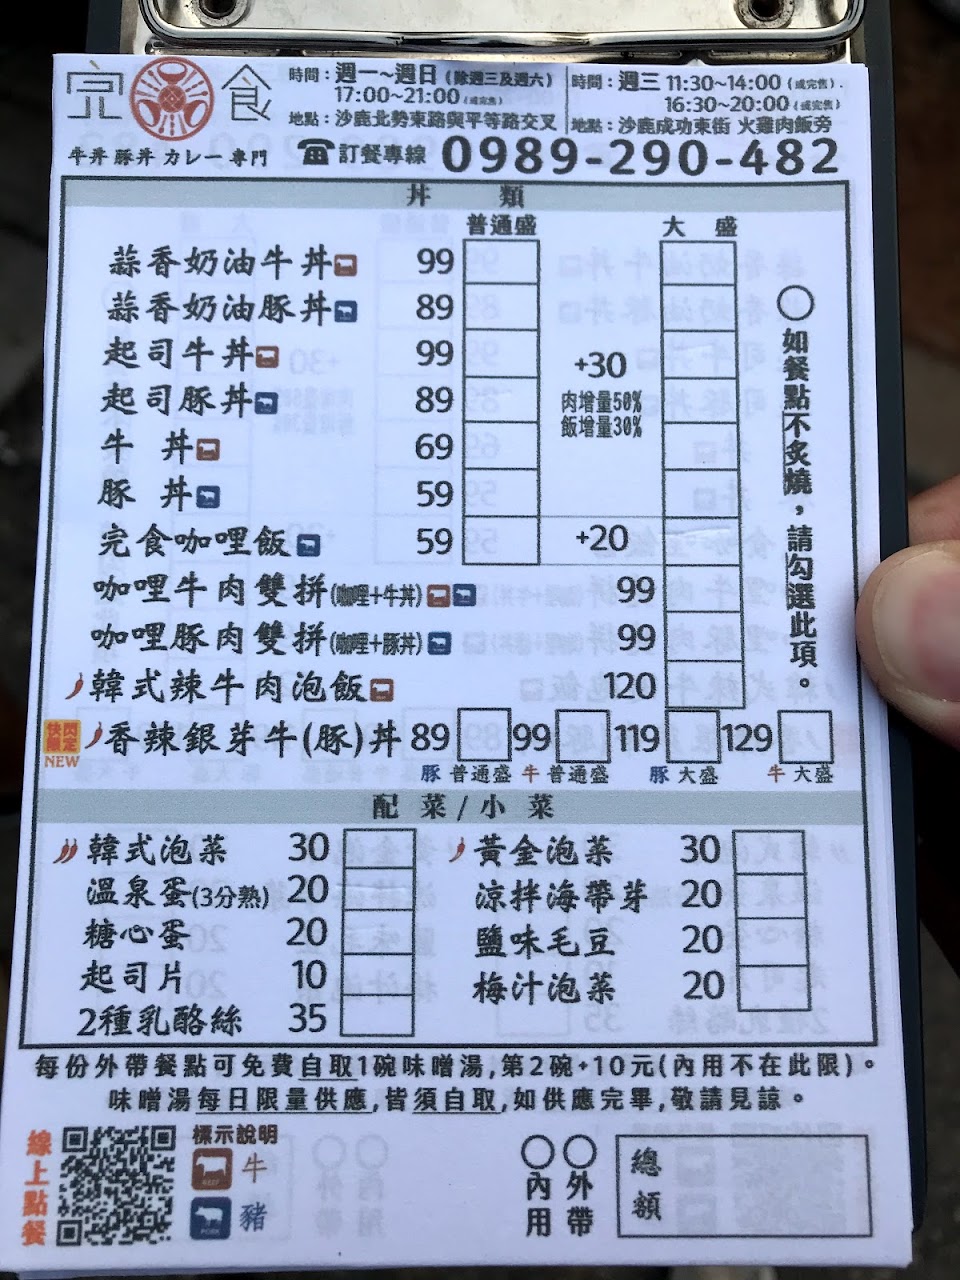 完食
牛丼 豚丼 カレー専門
時間：週一～週日（除週三及週六）
17:00~21:00（或完售）
地點：沙鹿北勢東路與平等路交叉
時間：週三 11:30~14:00（或完售）.
16:30~20:00（或完售）
地點：沙鹿成功東街 火雞肉飯旁
☎訂餐專線 0989-290-482
丼 類
普通盛 大 盛
蒜香奶油牛丼 99
蒜香奶油豚丼 89
起司牛丼 99
起司豚丼 89
牛 丼 69
豚 丼 59
+30
肉增量50%
飯增量30%
完食咖哩飯 59 +20
咖哩牛肉雙拼(咖哩+牛丼) 99
咖哩豚肉雙拼(咖哩+豚丼) 99
韓式辣牛肉泡飯 120
○如餐點不炙燒，請勾選此項。
快閃限定 NEW
香辣銀芽牛(豚)丼 89 99 119 129
豚 普通盛 牛 普通盛 豚 大盛 牛 大盛
配 菜 / 小 菜
韓式泡菜 30
溫泉蛋(3分熟) 20
糖心蛋 20
起司片 10
2種乳酪絲 35
黃金泡菜 30
涼拌海帶芽 20
鹽味毛豆 20
梅汁泡菜 20
每份外帶餐點可免費自取1碗味噌湯,第2碗+10元(內用不在此限)。
味噌湯每日限量供應,皆須自取,如供應完畢,敬請見諒。
線上點餐
標示說明
牛
豬
○內用
○外帶
總額